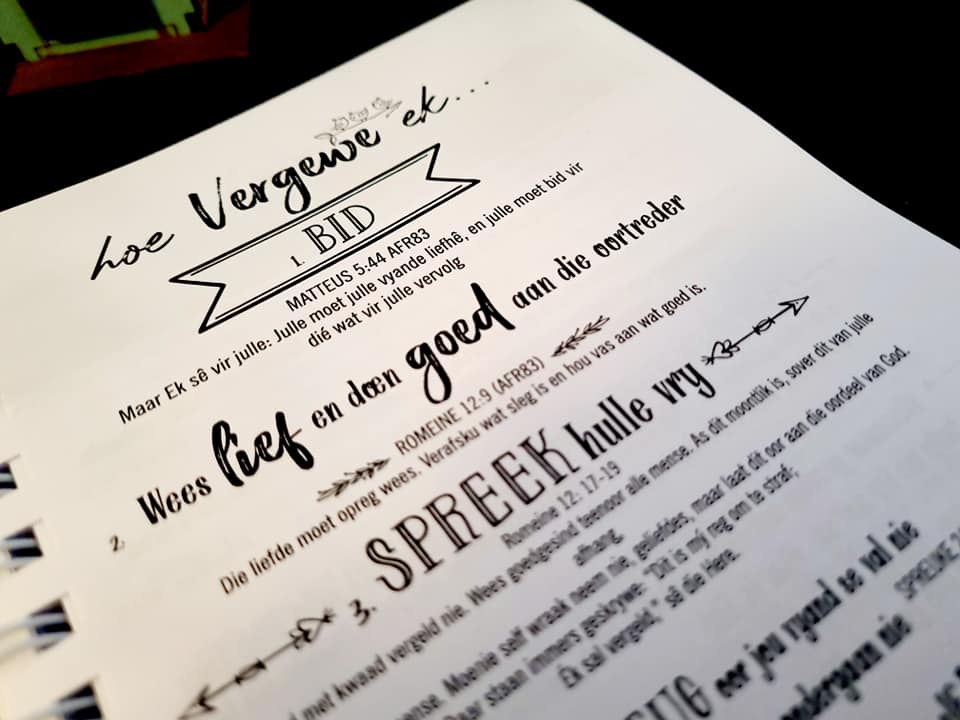 hoe Vergewe ek...
1. BID
MATTEUS 5:44 AFR83
Maar Ek sê vir julle: Julle moet julle vyande liefhê, en julle moet bid vir
dié wat vir julle vervolg
2. Wees lief en doen goed aan die oortreder
ROMEINE 12:9 (AFR83)
Die liefde moet opreg wees. Verafsku wat sleg is en hou vas aan wat goed is.
3. SPREEK hulle vry
Romeine 12: 17-19
met kwaad vergeld nie. Wees goedgesind teenoor alle mense. As dit moontlik is, sover dit van julle
afhang,
Moenie self wraak neem nie, geliefdes, maar laat dit oor aan die oordeel van God.
Daar staan immers geskrywe: "Dit is mý reg om te straf;
Ek sal vergeld," sê die Here.
oor jou vyand se val nie
SPREUKE
ondergaan nie